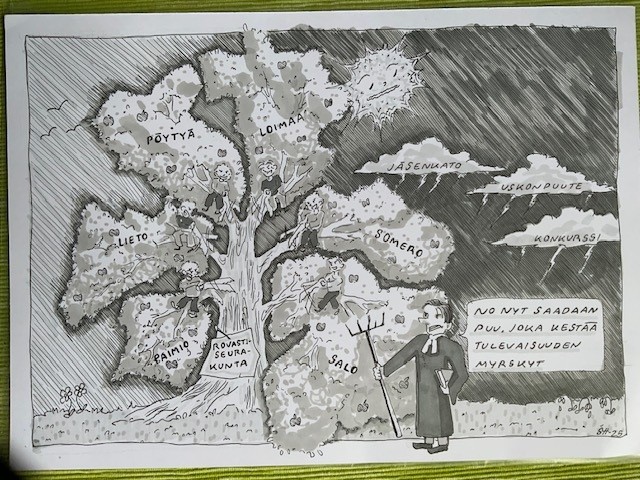 PÖYTYÄ
LOIMAA
JÄSENKATO
USKONPUUTE
KONKURSSI
LIETO
SOMERO
PAIMIO
ROVASTI-
SEURA-
KUNTA
SALO
NO NYT SAADAAN
PUU, JOKA KESTÄÄ
TULEVAISUUDEN
MYRSKYT